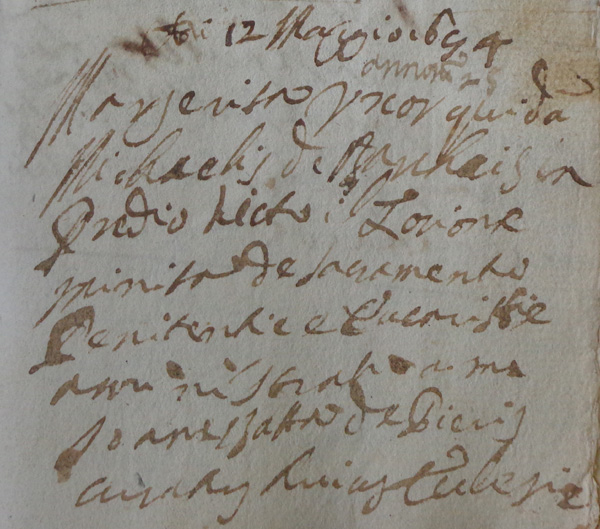 Adi 12 Maggio 1694
annorum 25
Margerita uxor quōda
Michaelis de in
Predio dicto il
munita de sacramento
Penitentie e Eucaristie
aministrati a me
Joanes Batta de Pieris
curatus huius Eclesie